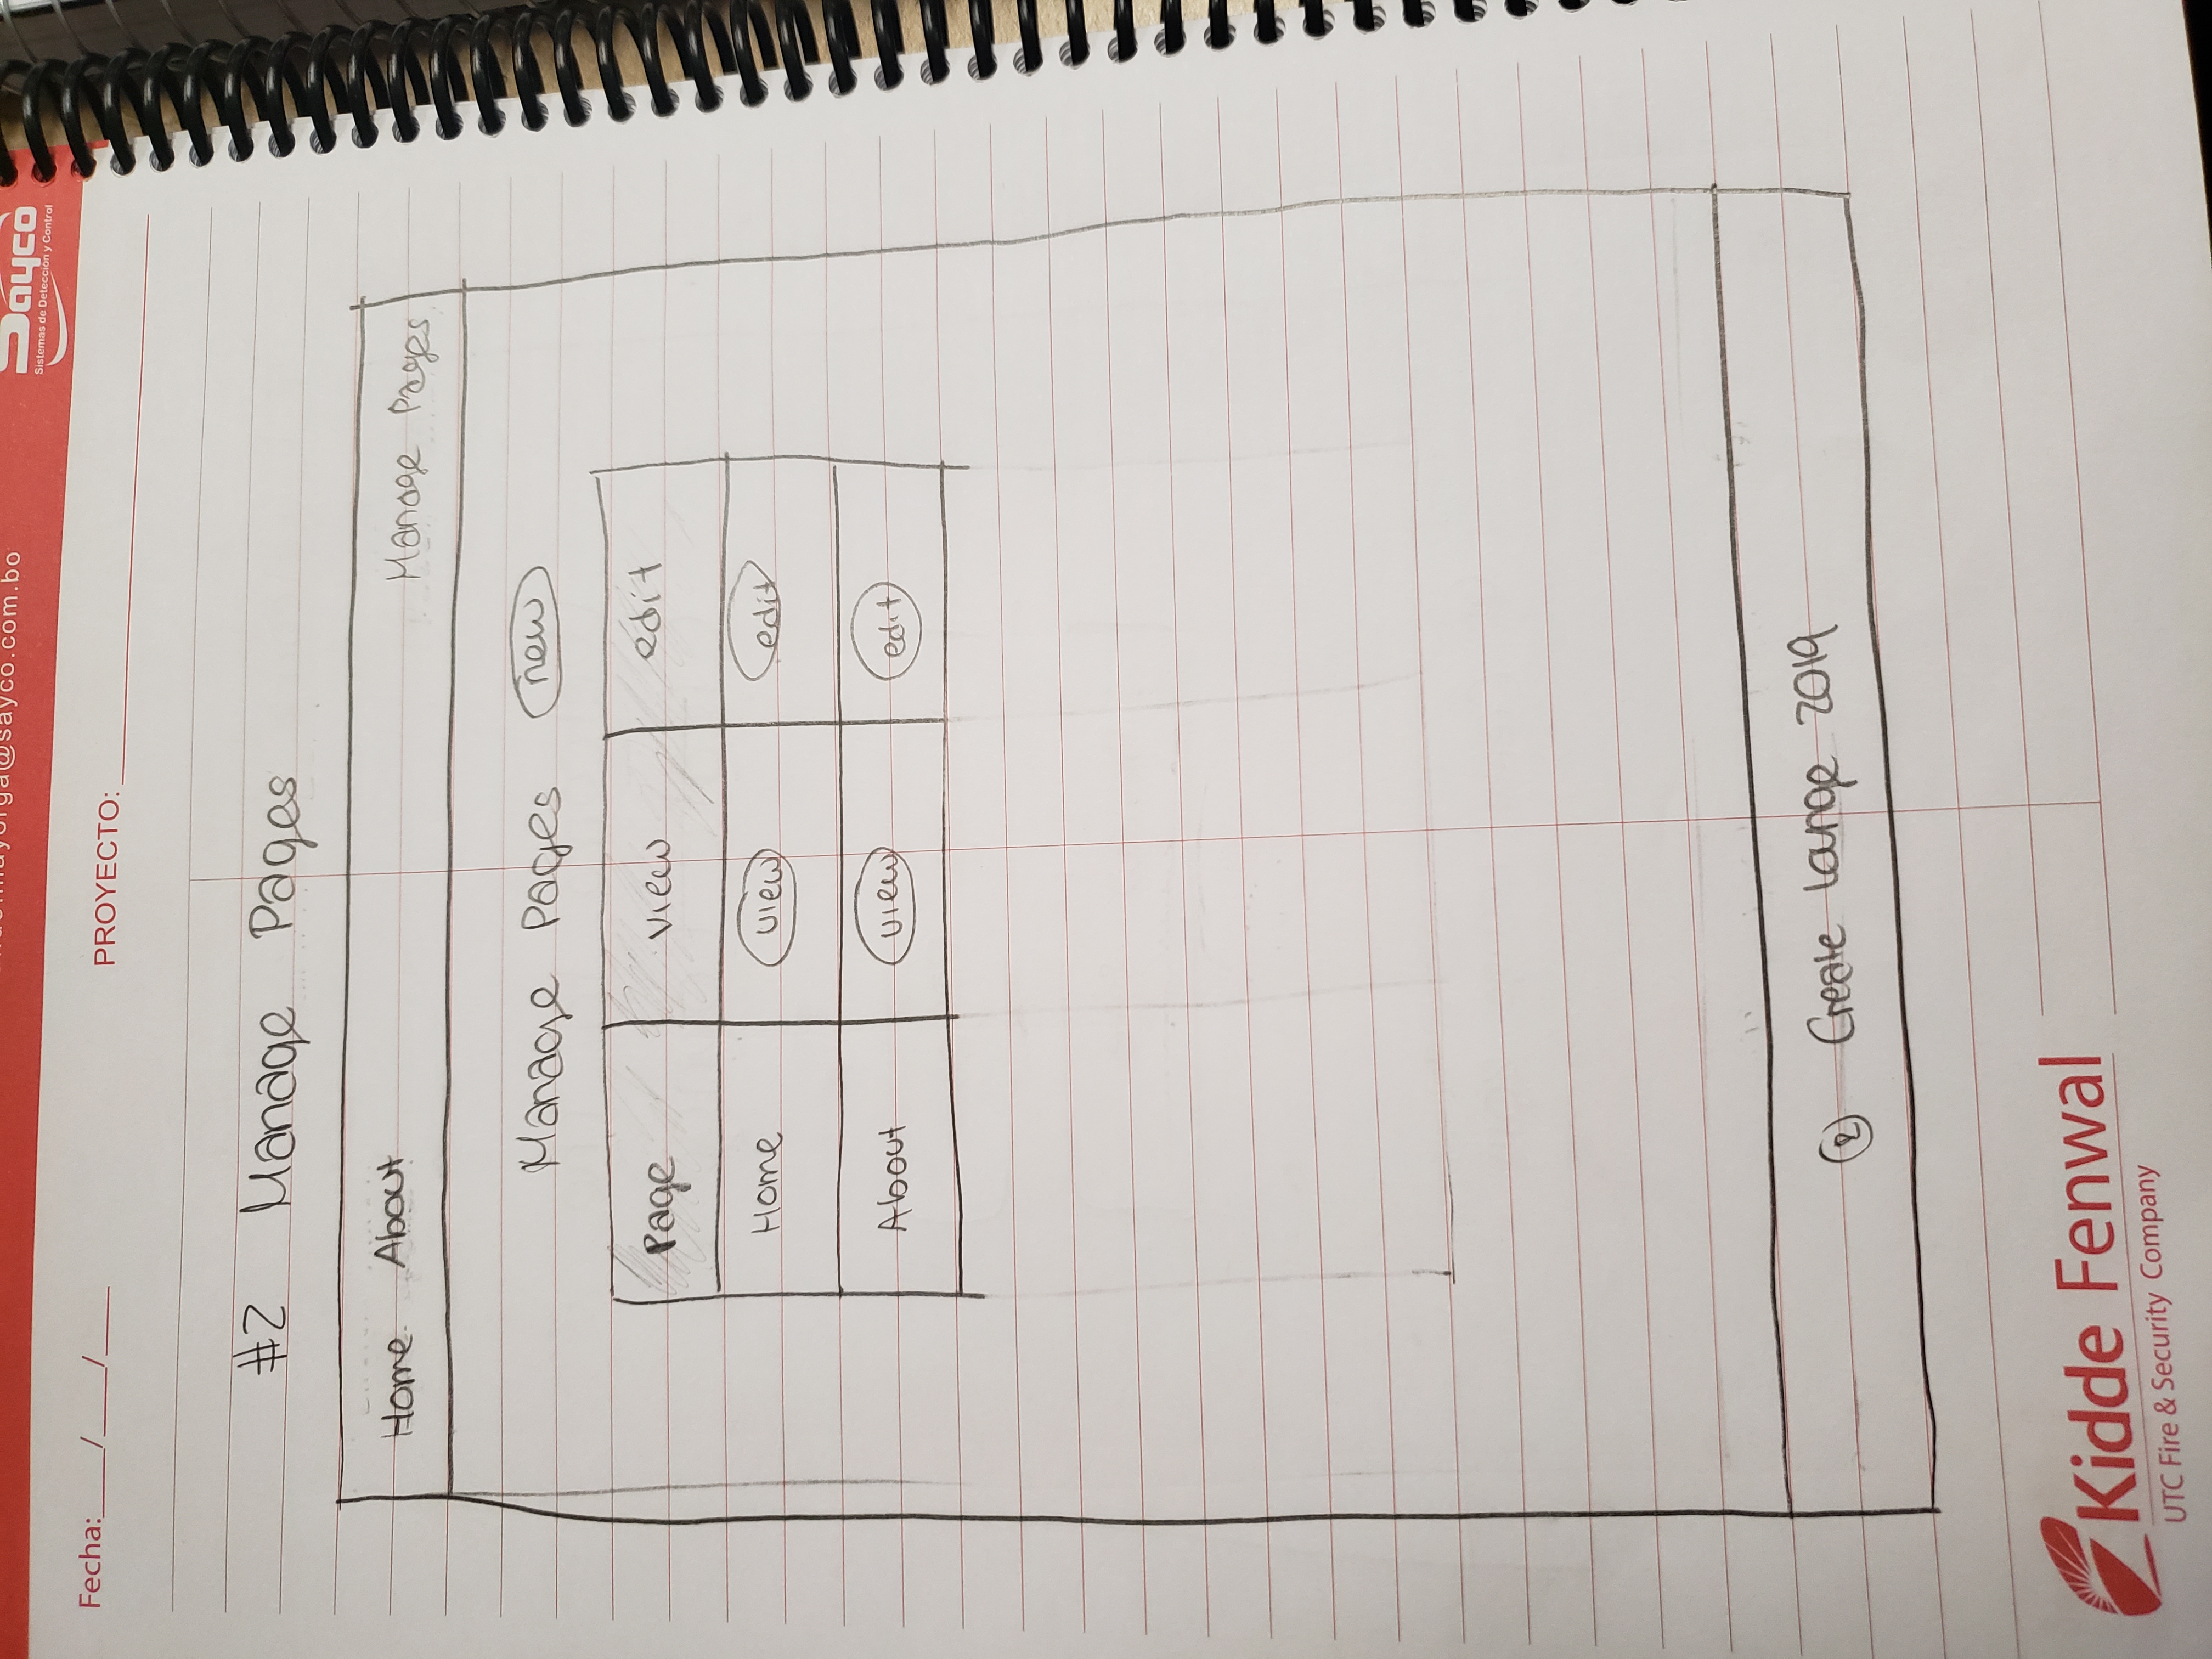 @sayco.com.bo
Sayco
Sistemas de Detección y Control
Fecha:____/____/____ PROYECTO:
#2 Manage Pages
Home About Manage Pages
Manage Pages new
Page view edit
Home view edit
About view edit
Create Lounge 2019
Kidde Fenwal
UTC Fire & Security Company